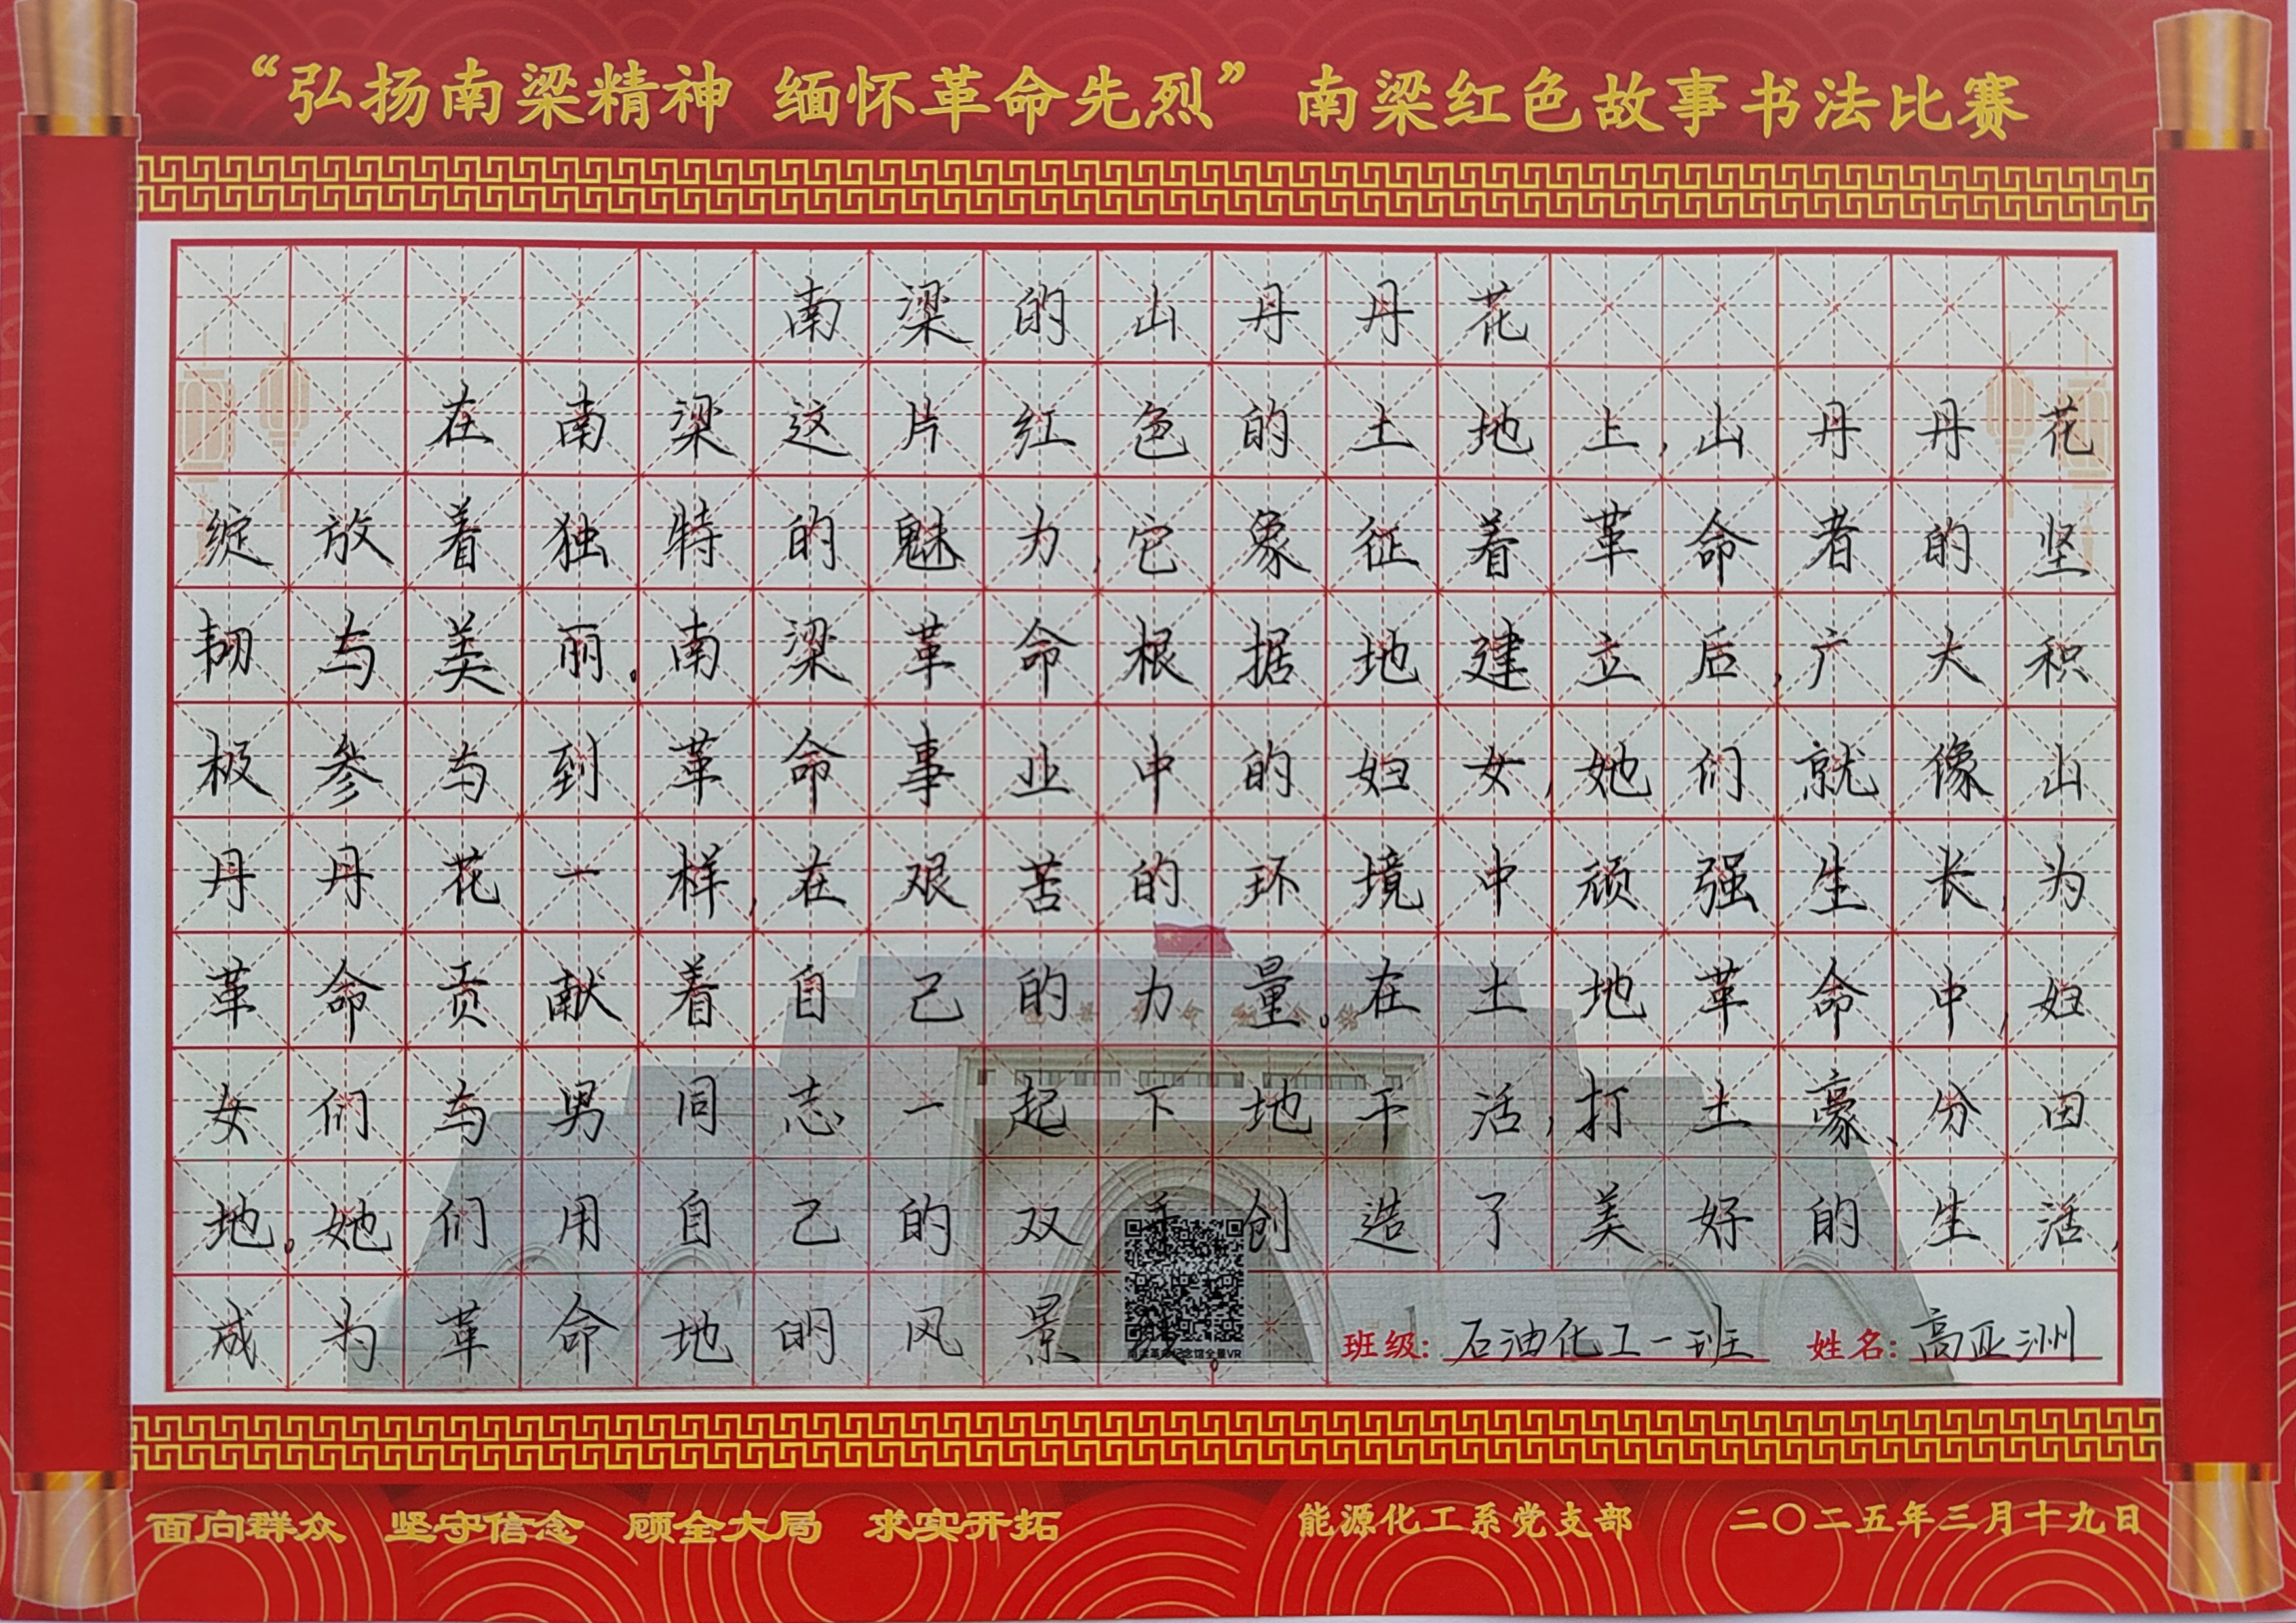 “弘扬南梁精神 缅怀革命先烈”南梁红色故事书法比赛
南梁的山丹丹花
在南梁这片红色的土地上,山丹丹花
绽放着独特的魅力,它象征着革命者的坚
韧与美丽。南梁革命根据地建立后,广大积
极参与到革命事业中的妇女,她们就像山
丹丹花一样,在艰苦的环境中顽强生长,为
革命贡献着自己的力量。在土地革命中,妇
女们与男同志一起下地干活,打土豪、分田
地。她们用自己的双手创造了美好的生活,
成为革命地的风景。
南梁革命纪念馆全景VR
班级:石油化工一班 姓名:高亚洲
面向群众 坚守信念 顾全大局 求实开拓 能源化工系党支部 二〇二五年三月十九日